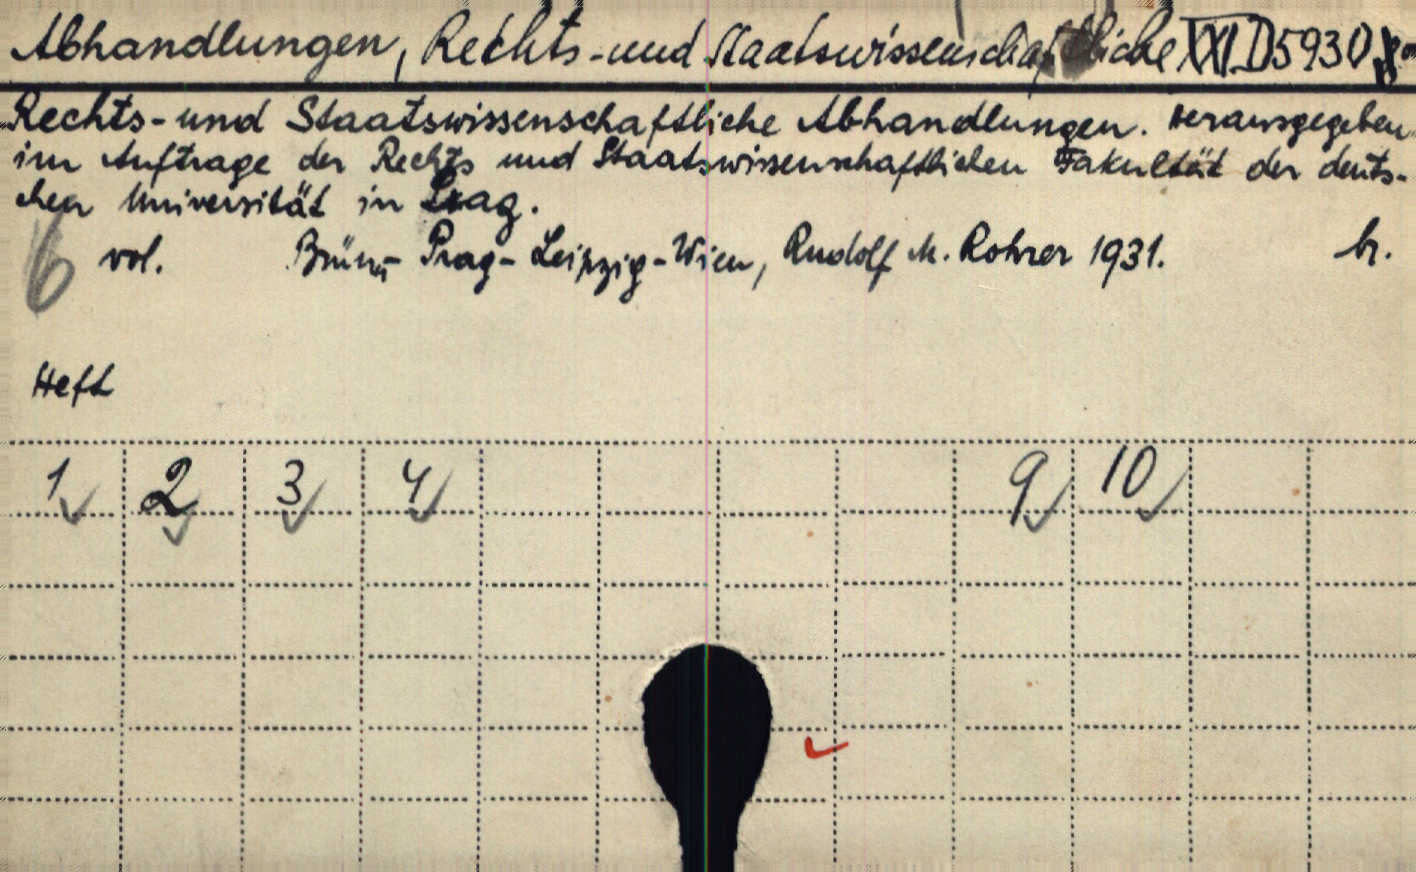 Abhandlungen, Rechts-und Staatswissenschaftliche XXI D 5930
Rechts-und Staatswissenschaftliche Abhandlungen. Herausgegeben
im Auftrage der Rechts und Staatswissenschaftlichen Fakultät der deuts-
chen Universität in Prag.
6 vol. Brünn-Prag-Leipzig-Wien, Rudolf M. Rohrer 1931. br.
Heft
1 2 3 4 9 10